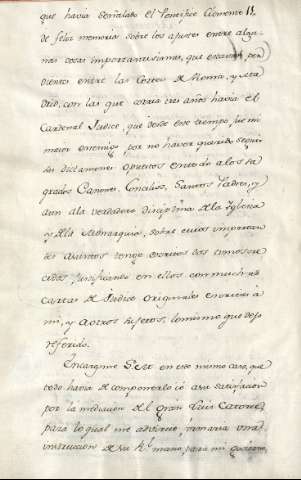 que havia señalado el Pontifice Clemente 11,
de feliz memoria sobre los ajustes entre algu-
nas cosas importantissimas, que estavan pen
dientes entre las Cortes de Roma, y Ma
drid, con las que corria tres años havia el
Cardenal Judice, que desde este tiempo fue mi
mayor enemigo por no haver querido seguir
sus dictamenes opuestos en todo a los Sa
grados Canones, Concilios, Santos Padres, y
aun a la verdadera disciplina de la Yglesia
y de la Monarquia, sobre cuios importan
tes asuntos tengo escritos dos tomos
justificando en ellos con muchas
cartas de Judice originales escritas a
mi, y a otros sujetos, lo mismo que dejo
referido.
Encargóme S. M. en este mismo caso, que
todo havia de componerlo io a su satisfacion
por la mediacion del gran Luis Catorze,
para lo qual me advirtió, formaria una
instruccion de su Rl. mano, para mi govierno,